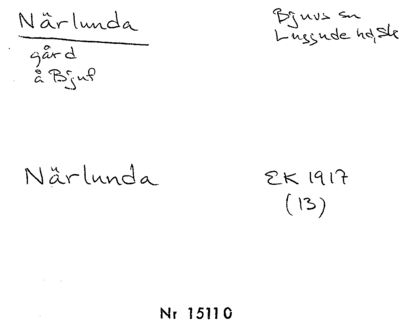 Närlunda
Bjuvs sn
Luggude hd, Sk
gård
å Bjuf
Närlunda
EK 1917
(13)
Nr 15110